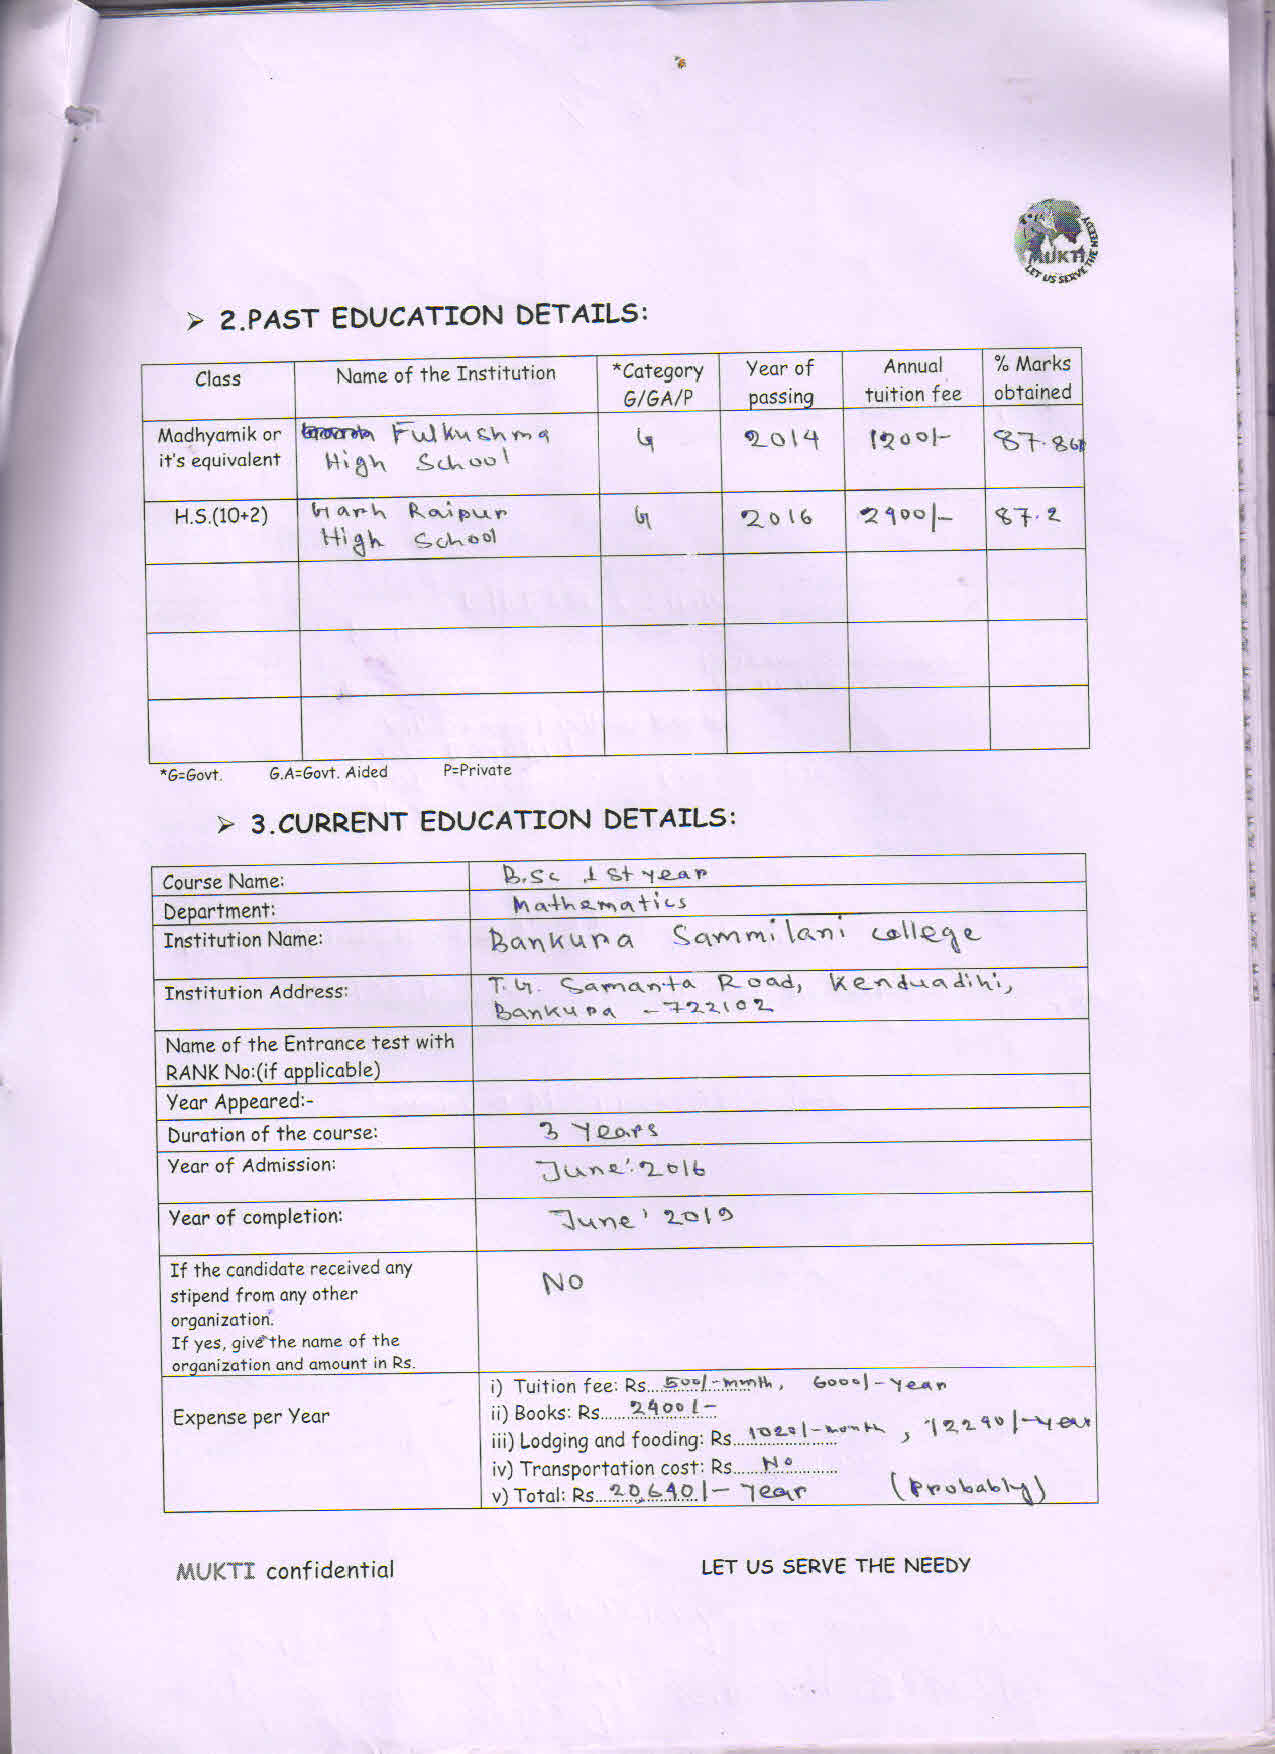 MUKTI
LET US SERVE THE NEEDY
➢ 2.PAST EDUCATION DETAILS:
Class Name of the Institution *Category G/GA/P Year of passing Annual tuition fee % Marks obtained
Madhyamik or it's equivalent Fulkushma High School G 2014 1200/- 87.86
H.S.(10+2) Garh Raipur High School G 2016 2400/- 87.2
*G=Govt. G.A=Govt. Aided P=Private
➢ 3.CURRENT EDUCATION DETAILS:
Course Name: B.Sc 1st year
Department: Mathematics
Institution Name: Bankura Sammilani college
Institution Address: T.G. Samanta Road, Kenduadihi,
Bankura - 722102
Name of the Entrance test with
RANK No:(if applicable)
Year Appeared:-
Duration of the course: 3 Years
Year of Admission: June' 2016
Year of completion: June' 2019
If the candidate received any NO
stipend from any other
organization.
If yes, give the name of the
organization and amount in Rs.
Expense per Year
i) Tuition fee: Rs....500/-month, 6000/-year
ii) Books: Rs.......2400/-
iii) Lodging and fooding: Rs...1020/-month, 12240/-year
iv) Transportation cost: Rs......No.........
v) Total: Rs...20,640/- Year (Probably)
MUKTI confidential LET US SERVE THE NEEDY